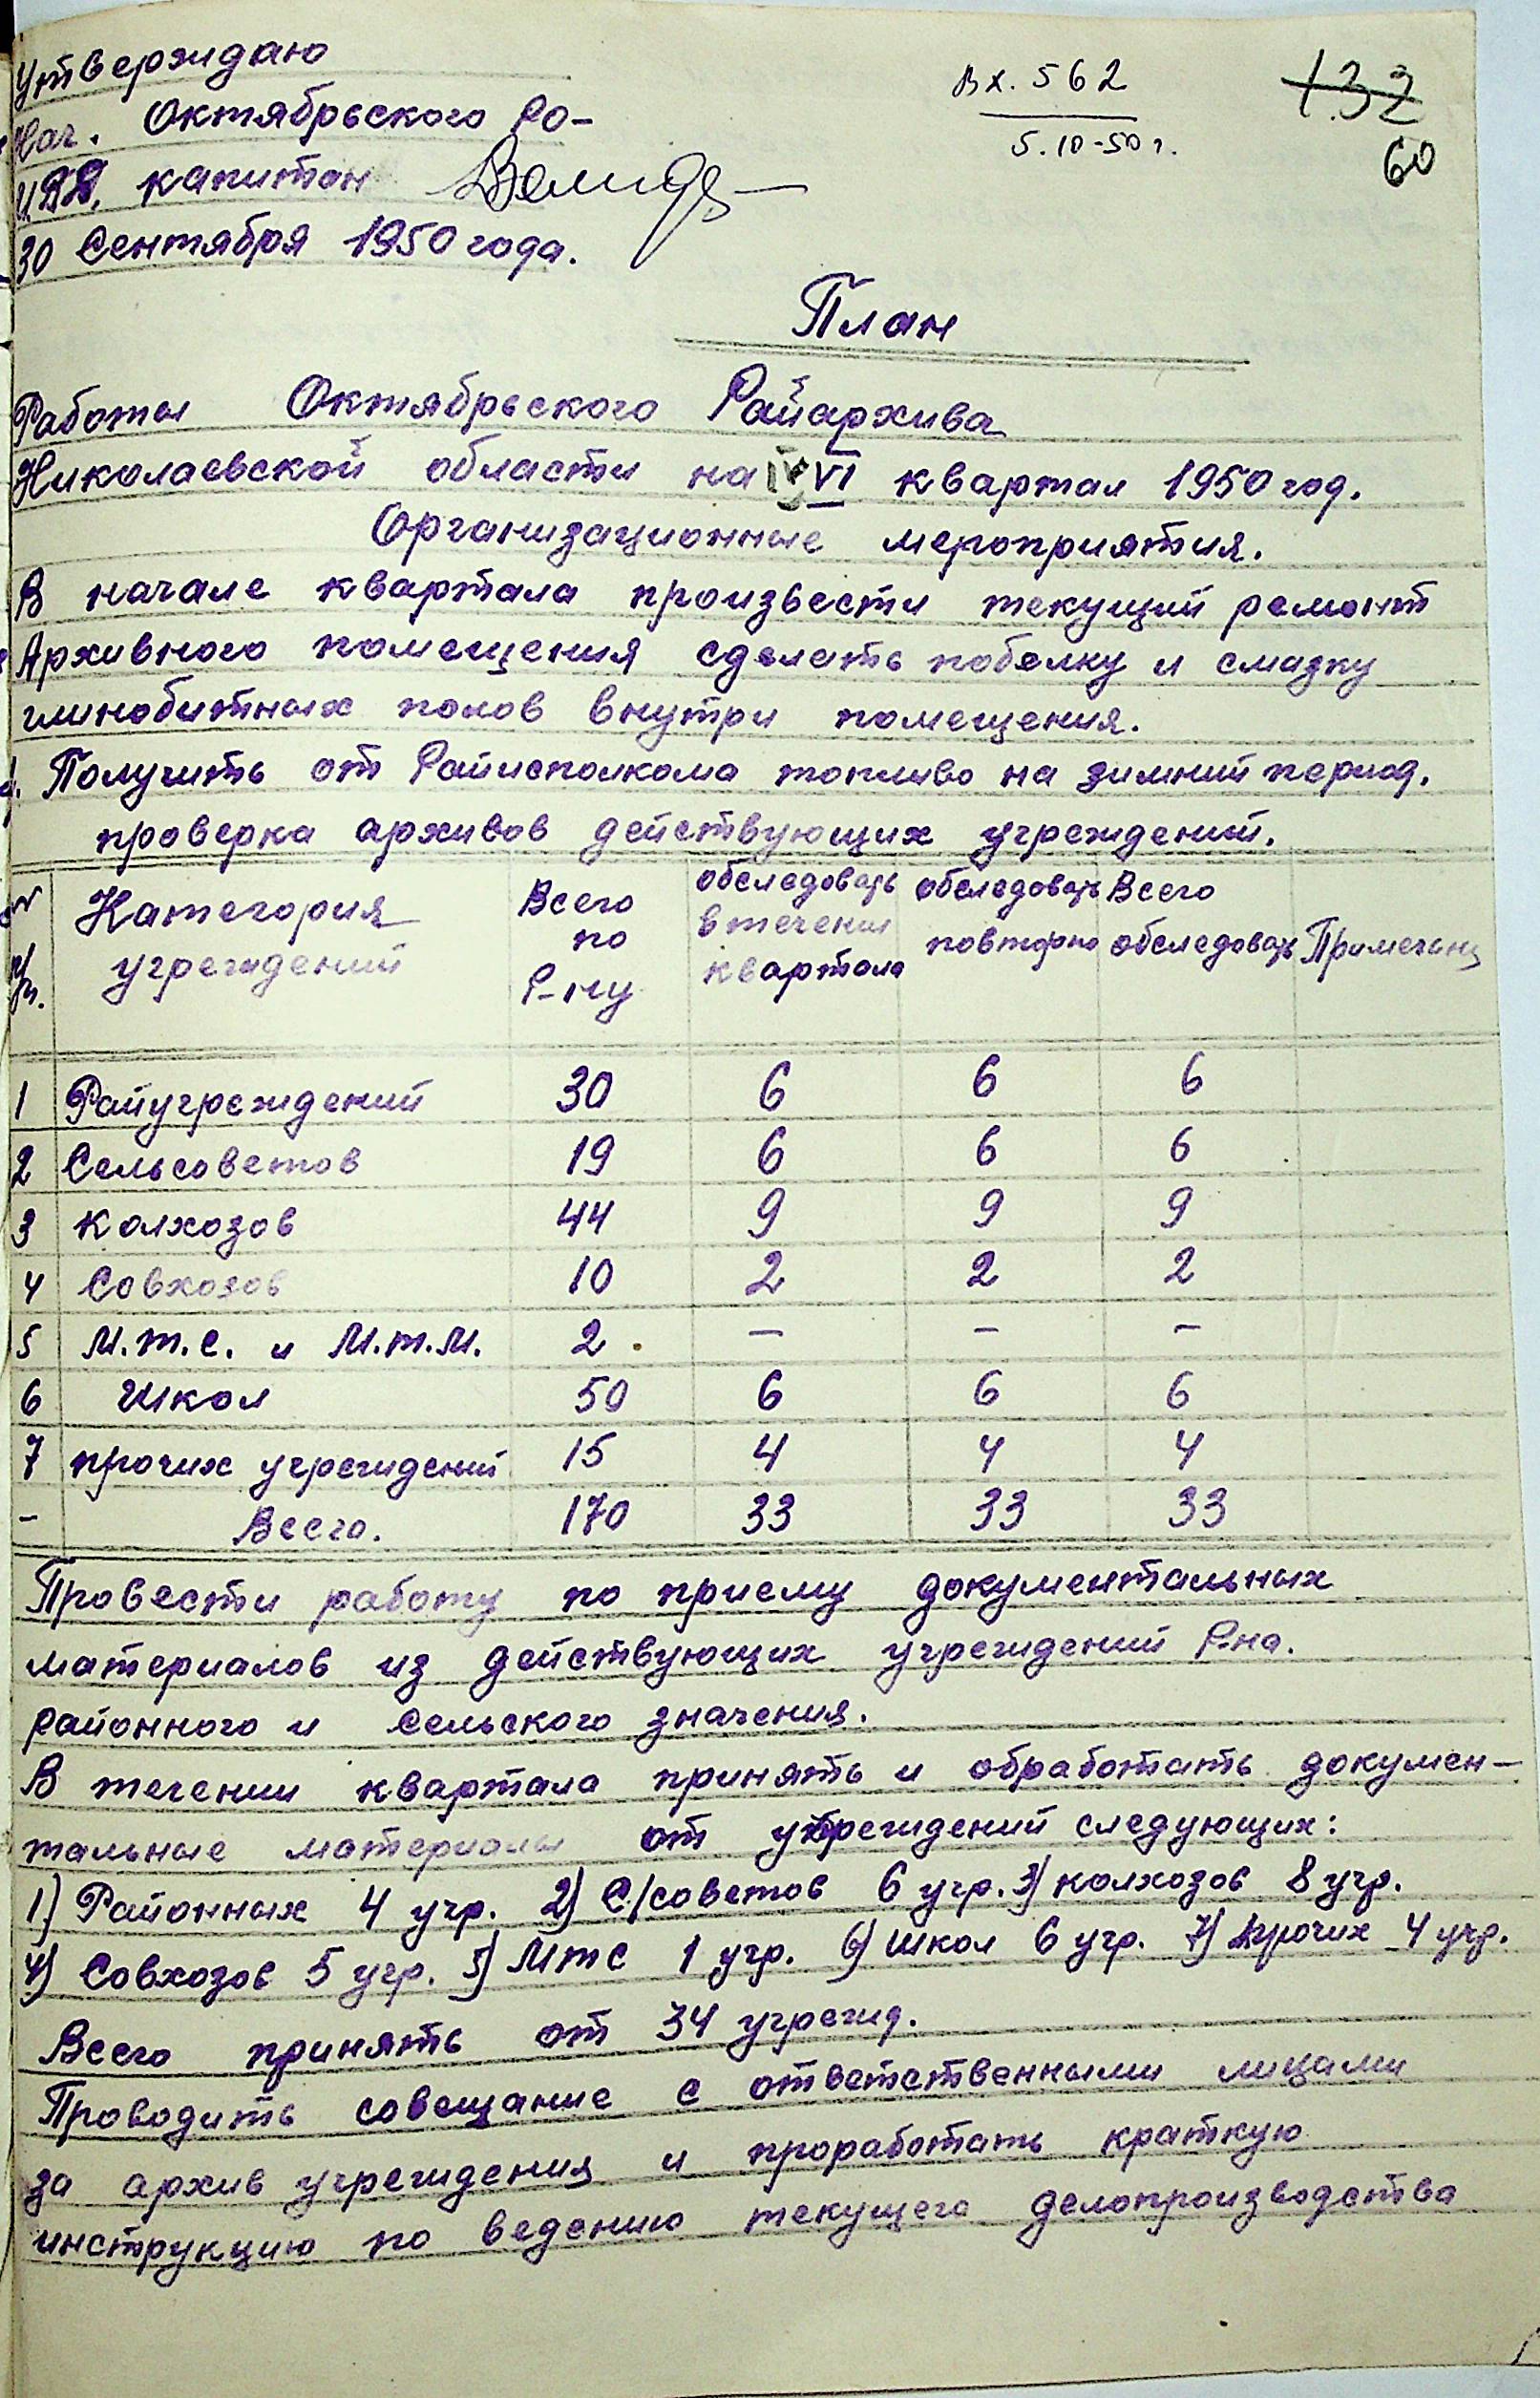 Утверждаю
Нач. Октябрьского Ро-
капитан
30 Сентября 1950 года.
Вх. 562
5.10-50 г.
132
60
План
Работы Октябрьского Райархива
Николаевской области на IV VI квартал 1950 год.
Организационные мероприятия.
В начале квартала произвести текущий ремонт
Архивного помещения сделать побелку и смазку
глинобитных полов внутри помещения.
Получить от Райисполкома топливо на зимний период.
проверка архивов действующих учреждений.
Категория учреждений Всего по Р-ну обследовать в течении квартала обследовать повторно Всего обследовать Примечание
1 Райучреждений 30 6 6 6
2 Сельсоветов 19 6 6 6
3 Колхозов 44 9 9 9
4 Совхозов 10 2 2 2
5 М.т.с. и М.т.м. 2 — — —
6 Школ 50 6 6 6
7 прочих учреждений 15 4 4 4
- Всего. 170 33 33 33
Провести работу по приему документальных
материалов из действующих учреждений Р-на.
районного и сельского значения.
В течении квартала принять и обработать докумен-
тальные материалы от учреждений следующих:
1) Районных 4 учр. 2) С/советов 6 учр. 3) колхозов 8 учр.
4) Совхозов 5 учр. 5) Мтс 1 учр. 6) школ 6 учр. 7) прочих 4 учр.
Всего принять от 34 учрежд.
Проводить совещание с ответственными лицами
за архив учреждения и проработать краткую
инструкцию по ведению текущего делопроизводства